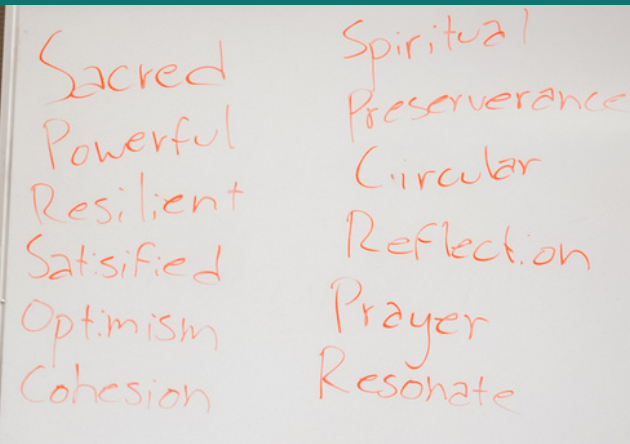 Sacred
Powerful
Resilient
Satisified
Optimism
Cohesion
Spiritual
Preserverance
Circular
Reflection
Prayer
Resonate